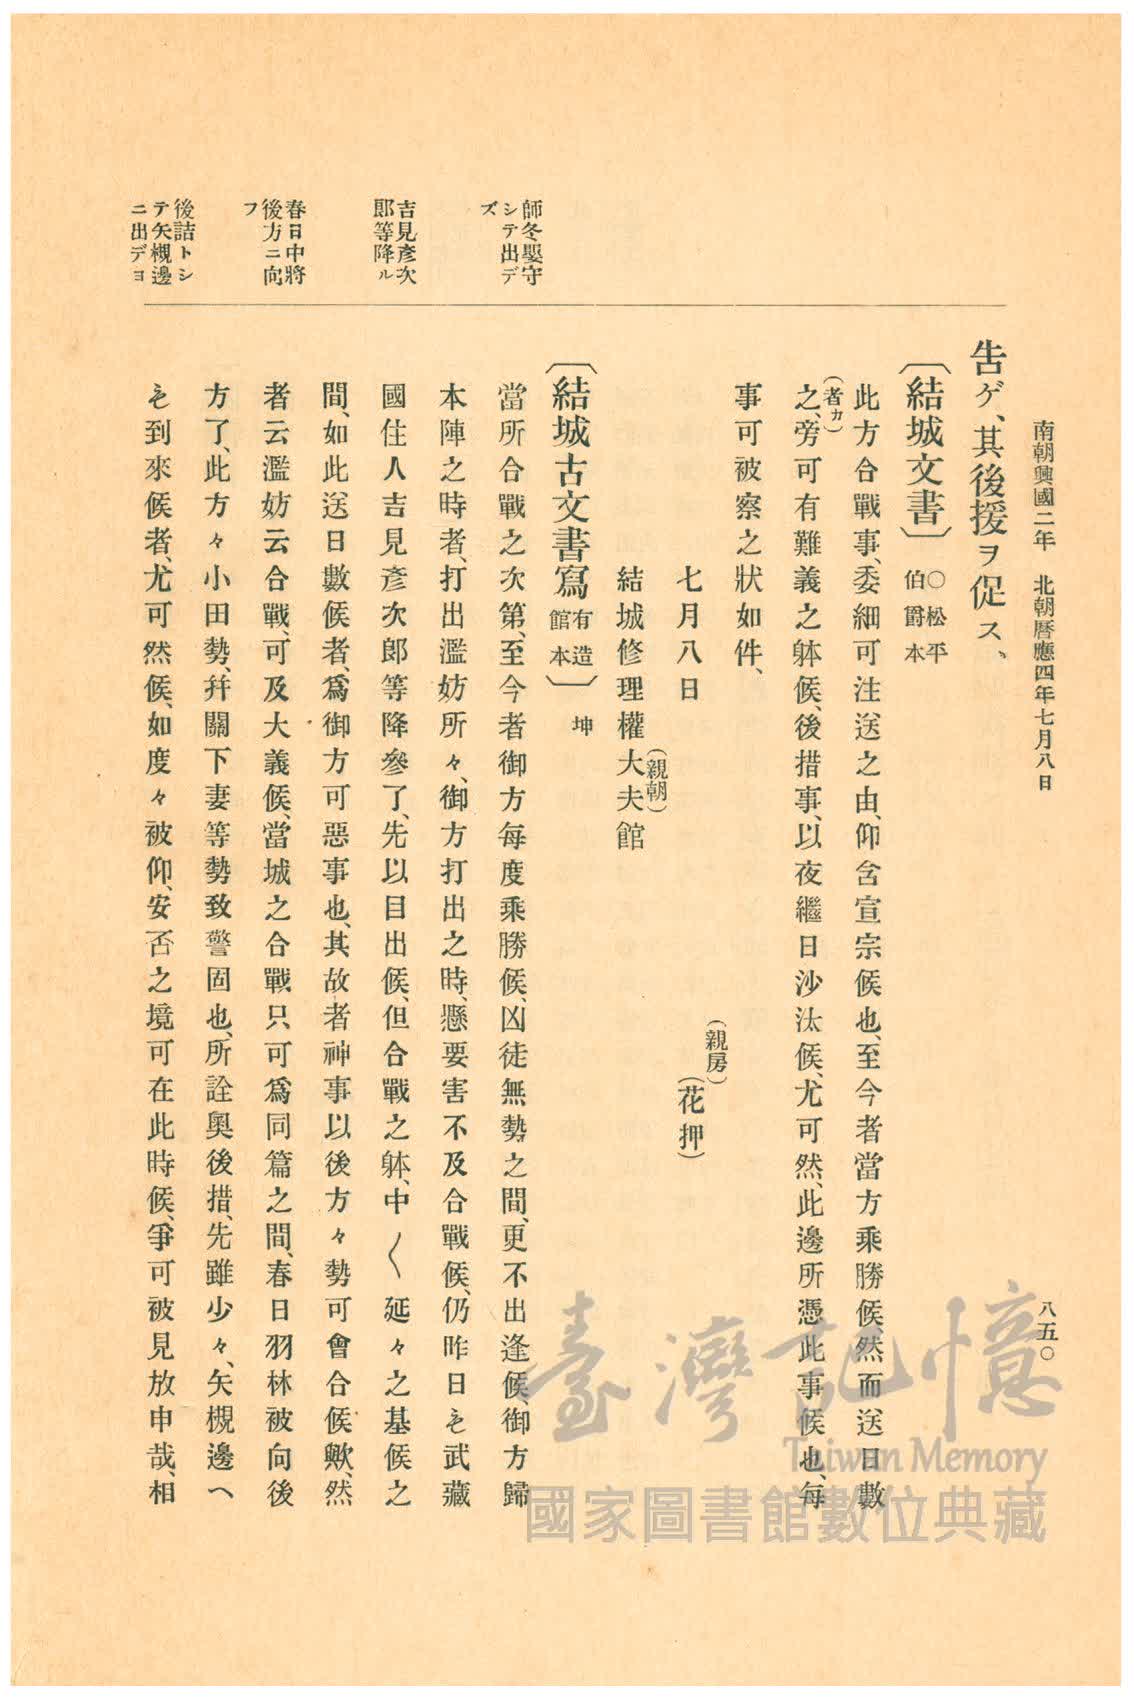 南朝興國二年　北朝曆應四年七月八日
八五〇
告ゲ、其後援ヲ促ス、
〔結城文書〕○松平伯爵本
此方合戰事、委細可注送之由、仰含宣宗候也、至今者當方乘勝候、然而送日數
之、(者カ)旁可有難義之躰候、後措事、以夜繼日沙汰候、尤可然、此邊所憑此事候也、每
事可被察之狀如件、
七月八日　(親房)(花押)
結城修理權大夫館(親朝)
〔結城古文書寫有造館本〕坤
當所合戰之次第、至今者御方每度乘勝候、凶徒無勢之間、更不出逢候、御方歸
本陣之時者、打出濫妨所々、御方打出之時、懸要害不及合戰候、仍昨日も武藏
國住人吉見彥次郎等降參了、先以目出候、但合戰之躰、中〱延々之基候之
間、如此送日數候者、爲御方可惡事也、其故者神事以後方々勢可會合候歟、然
者云濫妨云合戰、可及大義候、當城之合戰只可爲同篇之間、春日羽林被向後
方了、此方々小田勢、幷關下妻等勢致警固也、所詮奧後措、先雖少々、矢槻邊へ
も到來候者、尤可然候、如度々被仰、安否之境可在此時候、爭可被見放申哉、相
師冬堅守
シテ出デ
ズ
吉見彥次
郎等降ル
春日中將
後方ニ向
フ
後詰トシ
テ矢槻邊
ニ出デヨ
臺灣記憶
Taiwan Memory
國家圖書館數位典藏